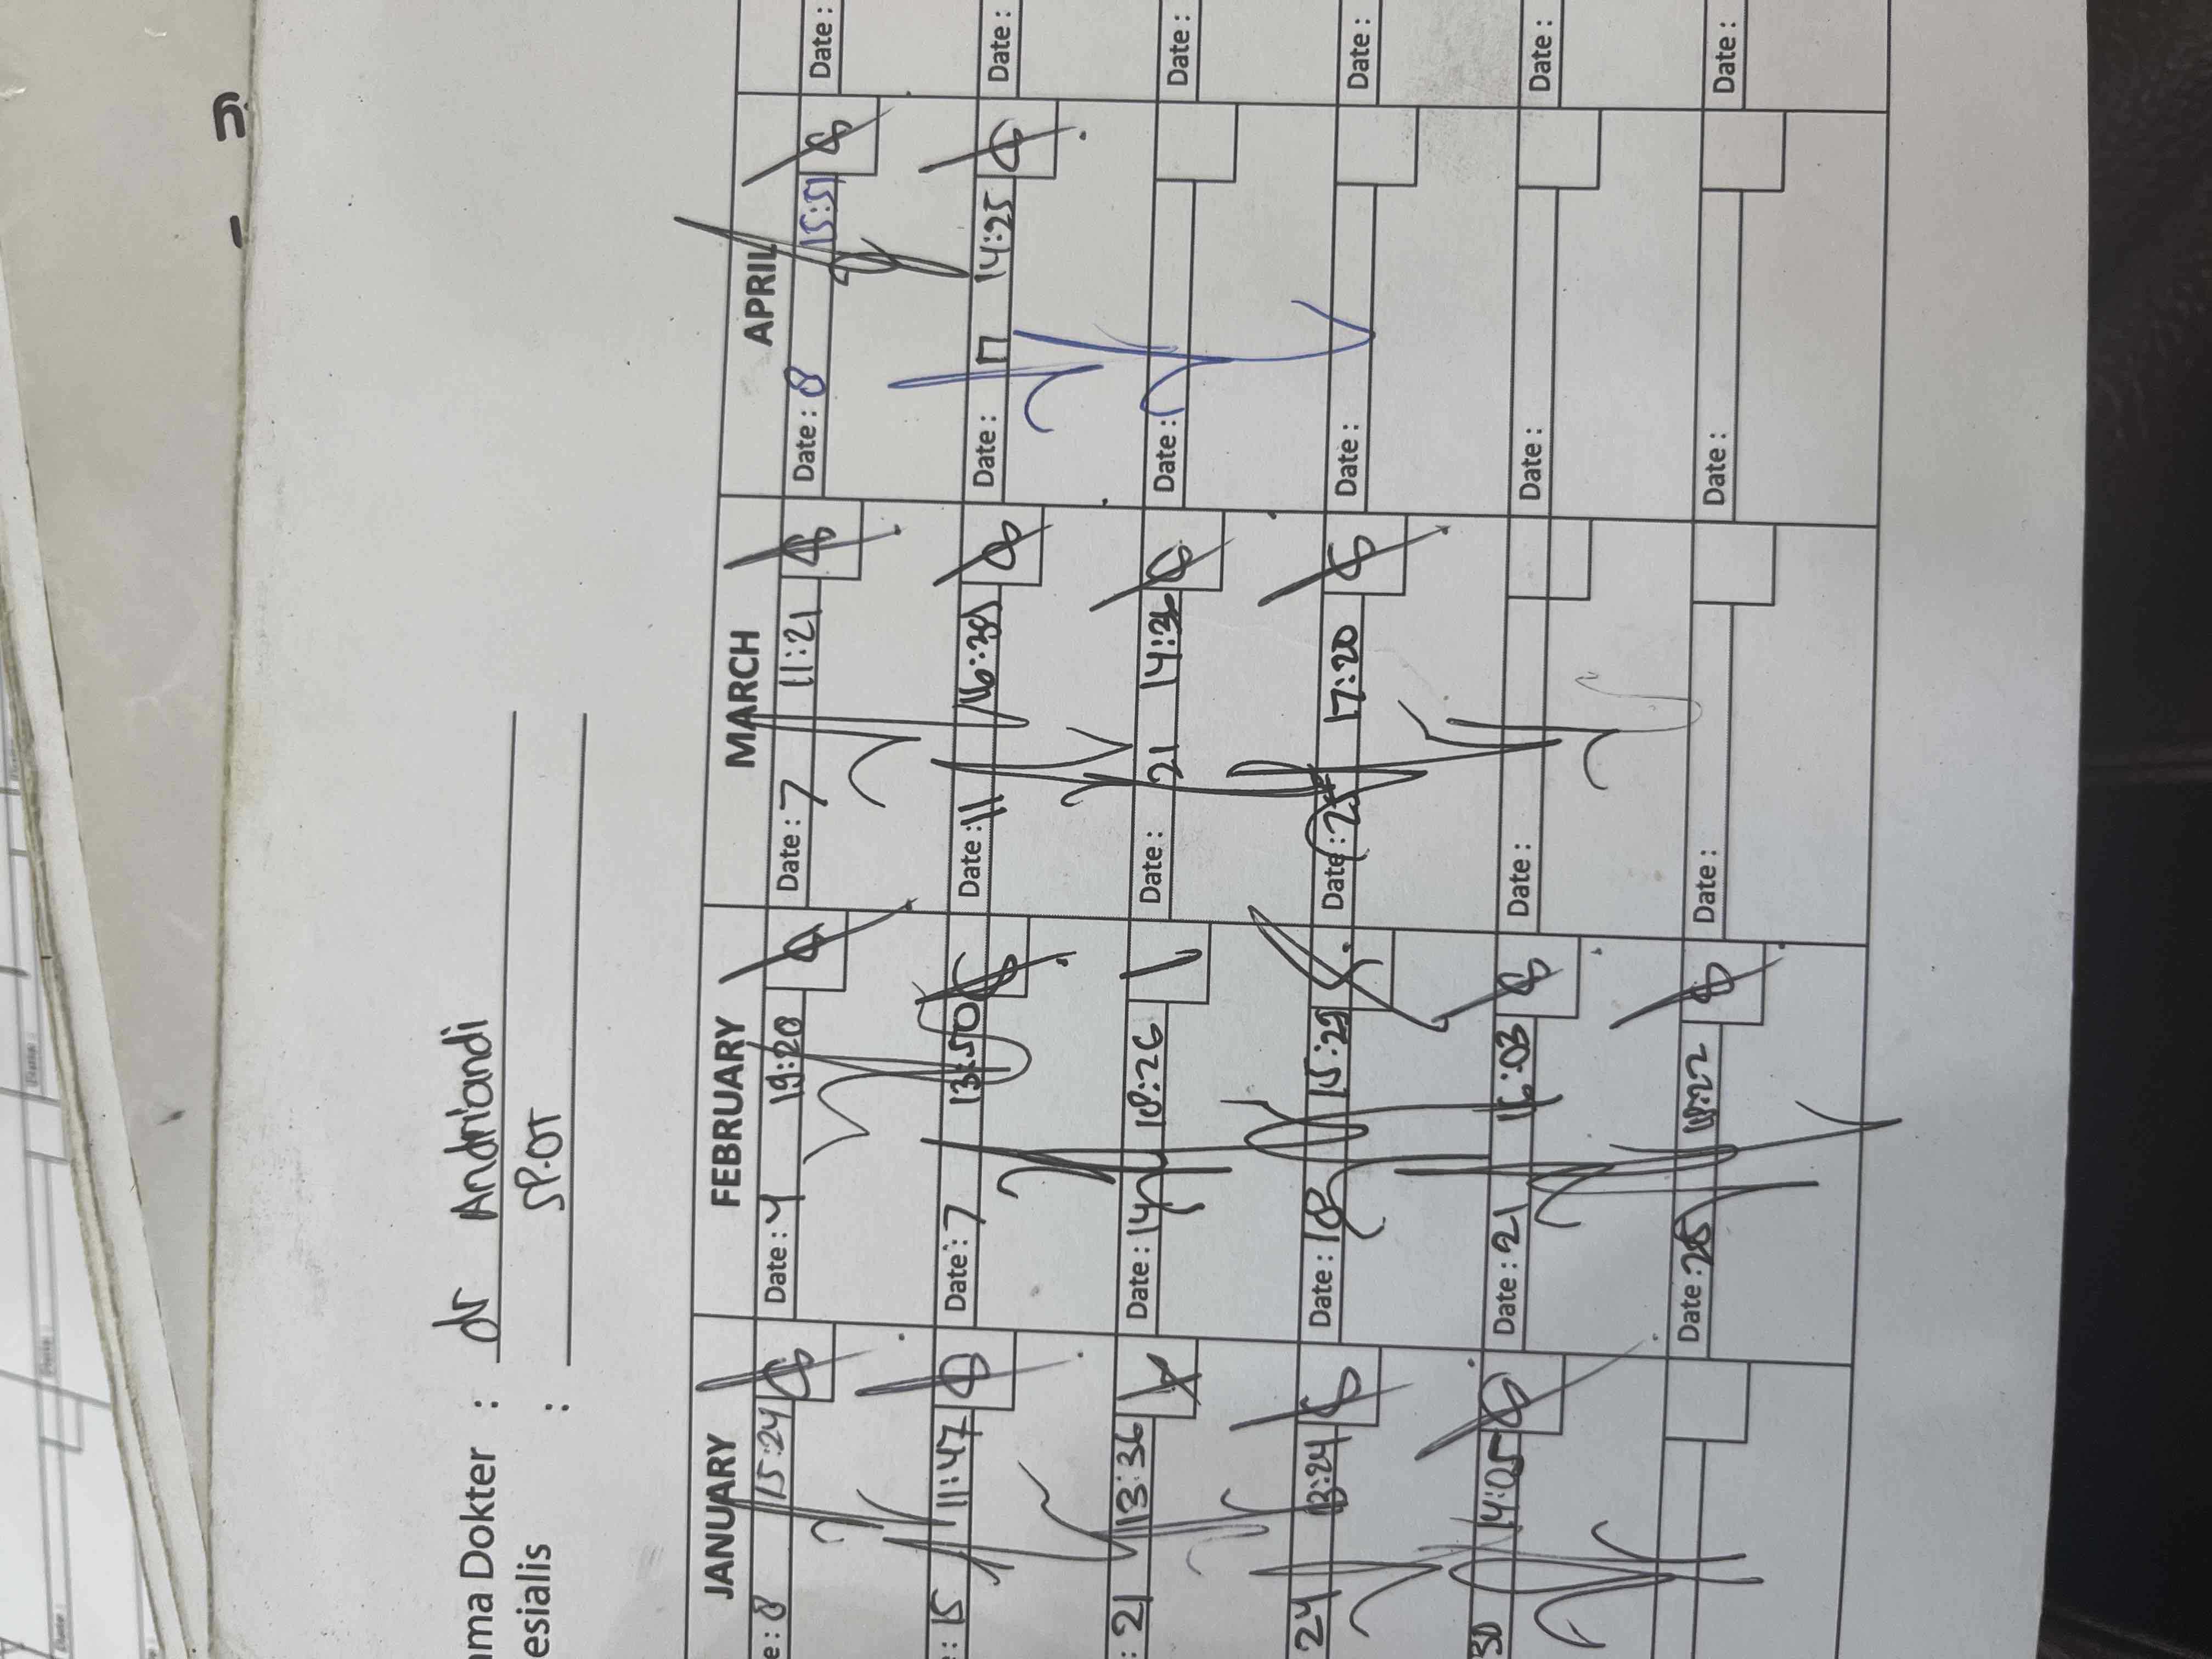 ama Dokter : dr Andriandi
esialis : SP.OT
JANUARY FEBRUARY MARCH APRIL
e : 8 15:24 Date : 4 19:20 Date : 7 11:21 Date : 8 15:51 Date :
e : 15 11:47 Date : 7 13:50 Date : 11 16:28 Date : 17 14:25 Date :
: 21 13:36 Date : 14 18:26 Date : 21 14:36 Date : Date :
24 13:24 Date : 18 15:29 Date : 25 17:20 Date : Date :
30 14:05 Date : 21 16:03 Date : Date : Date :
Date : 25 18:22 Date : Date : Date :